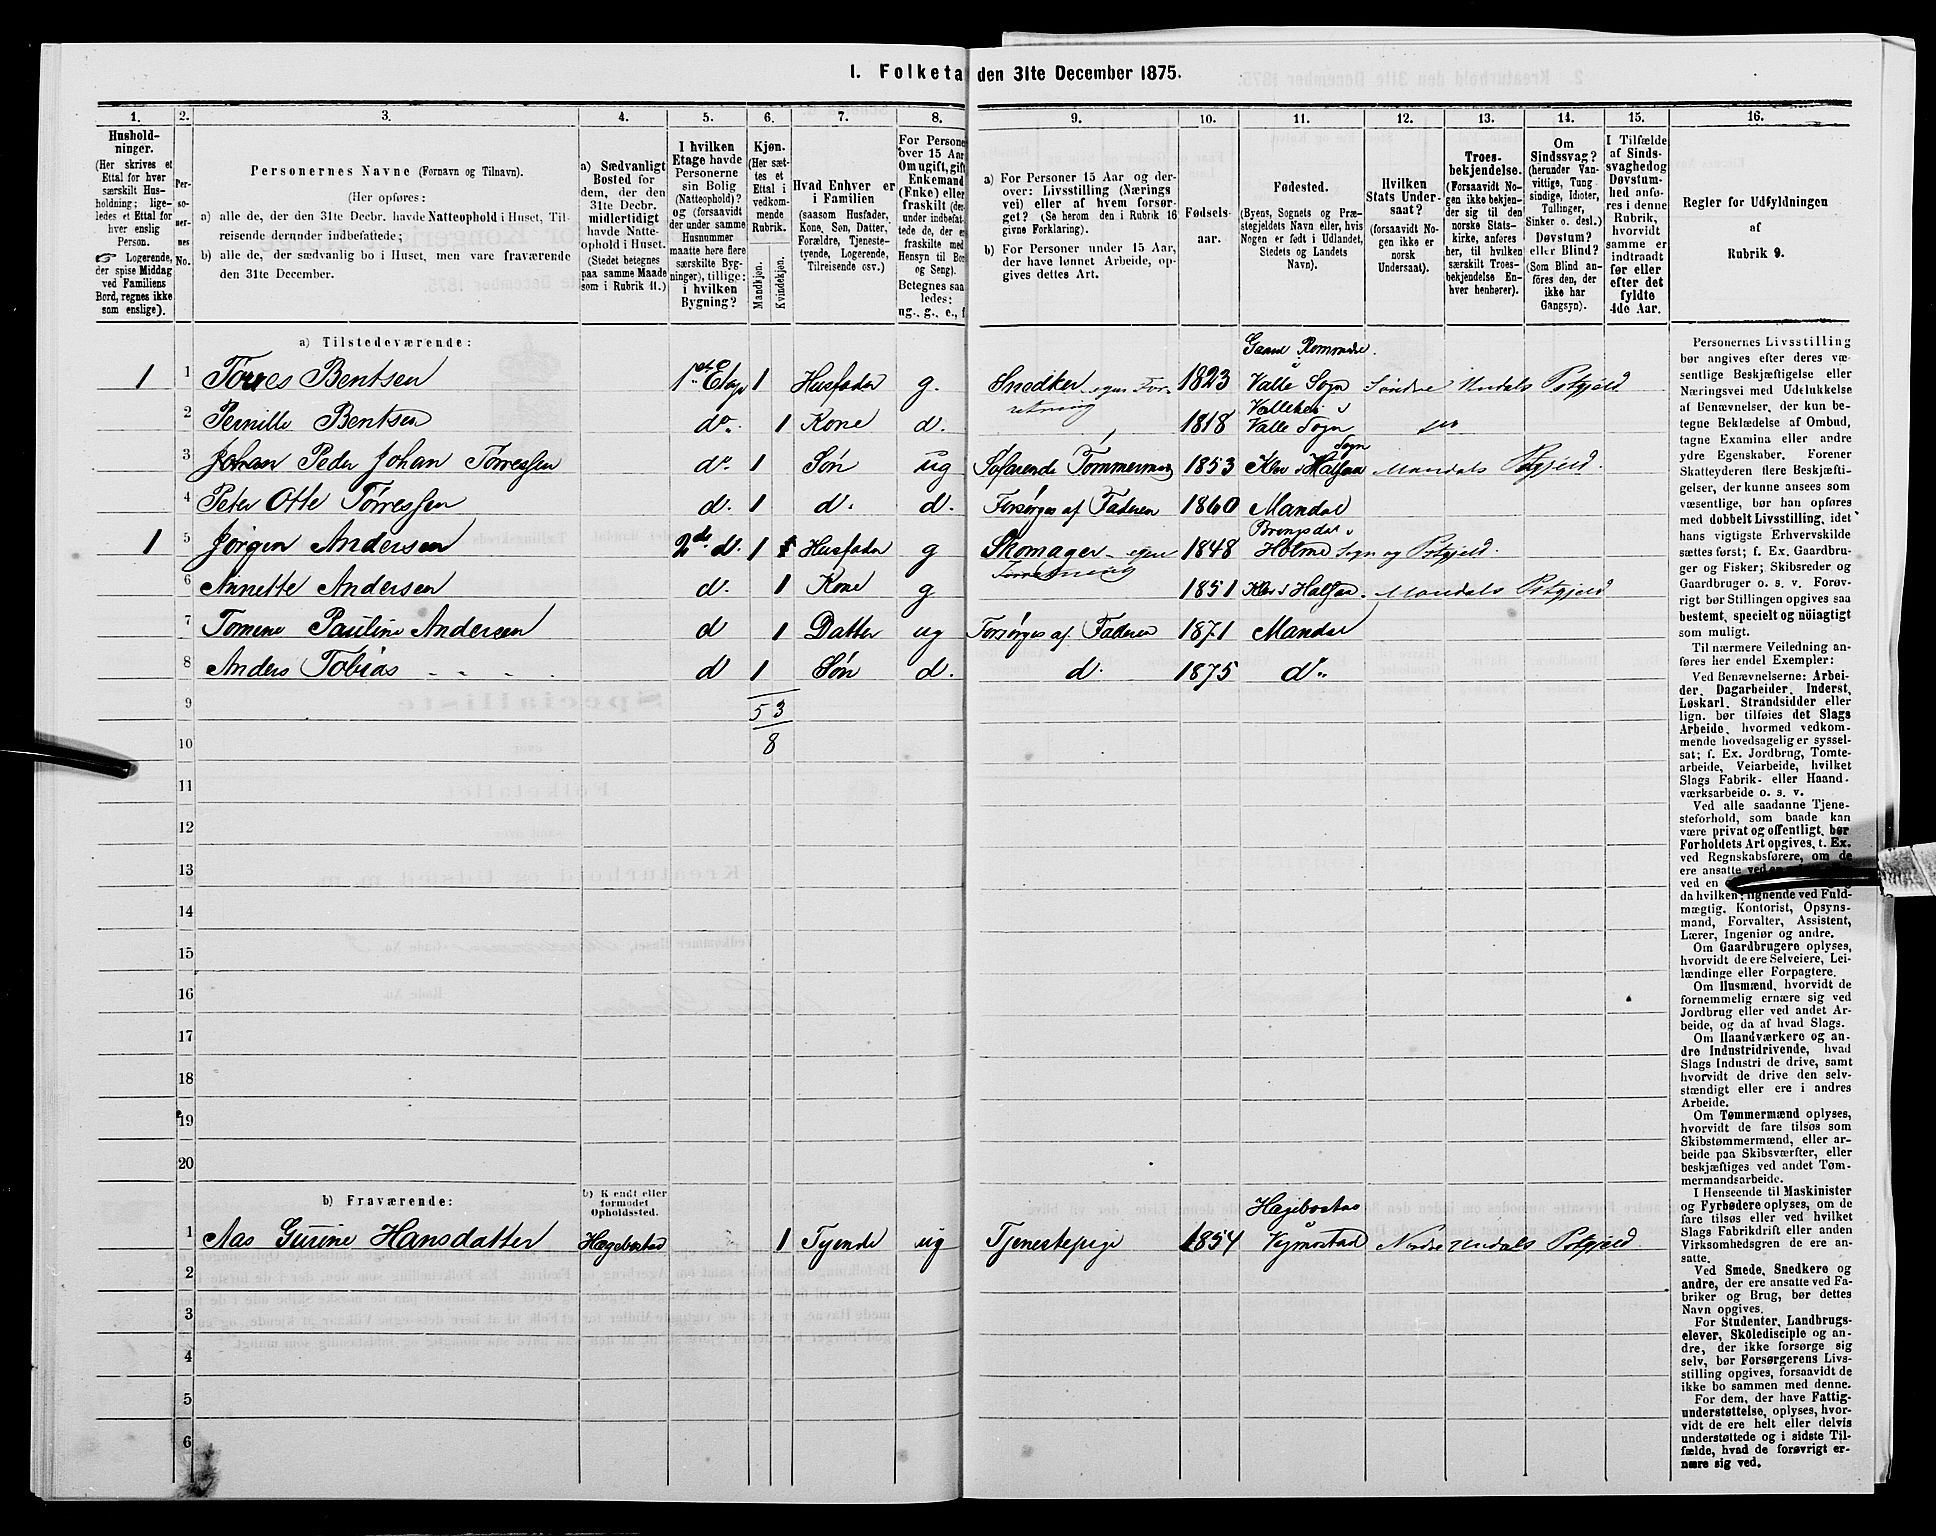 I. Folketa den 31te December 1875.
1. 2. 3. 4. 5. 6. 7. 8. 9. 10. 11. 12. 13. 14. 15. 16.
Hushold-
ninger.
(Her skrives et
Ettal for hver
særskilt Hus-
holdning; lige-
ledes et Ettal for
hver enslig
Person.
☞ Logerende,
der spise Middag
ved Familiens
Bord, regnes ikke
som enslige).
Per-
so-
ner-
nes
No.
Personernes Navne (Fornavn og Tilnavn).
(Her opføres:
a) alle de, der den 31te Decbr. havde Natteophold i Huset, Til-
reisende derunder indbefattede;
b) alle de, der sædvanlig bo i Huset, men vare fraværende
den 31te December.
a) Sædvanligt
Bosted for
dem, der den
31te Decbr.
midlertidigt
havde Natte-
ophold i Huset.
(Stedet betegnes
paa samme Maade
som i Rubrik 11.)
I hvilken
Etage havde
Personerne
sin Bolig
(Natteophold)?
og (forsaavidt
der under samme
Husnummer
maatte høre flere
særskilte Byg-
ninger), tillige:
i hvilken
Bygning?
Kjøn.
(Her sæt-
tes et
Ettal i
vedkom-
mende
Rubrik.
Mandkjøn.
Kvindekjøn.
Hvad Enhver er
i Familien
(saasom Husfader,
Kone, Søn, Datter,
Forældre, Tjeneste-
tyende, Logerende,
Tilreisende osv.)
For Persone
over 15 Aar
Om ugift, gift
Enkemand
(Enke) eller
fraskilt (der-
under indbefat-
tede de, der er
fraskilte med
Hensyn til Bor
og Seng).
Betegnes saa
ledes:
ug., g., e., f.
a) For Personer 15 Aar og der-
over: Livsstilling (Nærings
vei) eller af hvem forsør-
get? (Se herom den i Rubrik 16
givne Forklaring).
b) For Personer under 15 Aar,
der have lønnet Arbeide, op-
gives dettes Art.
Fødsels-
aar.
Fødested.
(Byens, Sognets og Præ-
stegjeldets Navn eller, hvis
Nogen er født i Udlandet,
Stedets og Landets
Navn).
Hvilken
Stats Under-
saat?
(forsaavidt No-
gen ikke er
norsk
Undersaat).
Troes-
bekjendelse.
(Forsaavidt No-
gen ikke bekjen-
der sig til den
norske Stats-
kirke, anføres
her, til hvilken
særskilt Troes-
bekjendelse En-
hver henhører).
Om
Sindssvag?
(herunder Van-
vittige, Tung
sindige, Idioter,
Tullinger,
Sinker o. desl.)
Døvstum?
eller Blind?
(Som Blind an-
føres den, der
ikke har
Gangsyn).
I Tilfælde
af Sinds-
svaghed og
Døvstum-
hed anfø-
res i denne
Rubrik,
hvorvidt
samme er
indtraadt
før eller
efter det
fyldte
4de Aar.
Regler for Udfyldningen
af
Rubrik 9.
a) Tilstedeværende:
Gaard
1 1 Torres Bentsen 1ste Etage 1 Husfader g. Snedker egen For- 1823 Valle Sogn Søndre Undals Pstgjeld
retning
2 Pernille Bentsen do. 1 Kone d. 1818 Valle Sogn
3 Johan Peder Johan Törressen do. 1 Søn ug Søfarende Tømmermand 1853 Klev i Halsaa Sogn Mandals Pstgjeld.
4 Peter Otto Törressen d. 1 d. d. Forsørges af Faderen 1860 Mandal
1 5 Jørgen Andersen 2de d. 1 Husfader g Skomager egen 1848 Holme Sogn og Pstgjeld.
Forretning
6 Annette Andersen d. 1 Kone g 1851 Klev i Halsaa Mandals Pstgjeld
7 Tomine Pauline Andersen d 1 Datter ug Forsørges af Faderen 1871 Mandal
8 Anders Tobias - - - - d 1 Søn d. d. 1875 do.
9 5 3
10 8
11
12
13
14
15
16
17
18
19
20
b) Fraværende:
b) Kendt eller
formodet
Opholdssted.
Hægebostad
1 Aas Gurine Hansdatter Hægebostad 1 Tyende ug Tjenestepige 1854 Nordre Undals Pstgjeld.
2
3
4
5
6
Personernes Livsstilling
bør angives efter deres væ-
sentlige Beskjæftigelse eller
Næringsvei med Udelukkelse
af Benævnelser, der kun be-
tegne Beklædelse af Ombud,
tagne Examina eller andre
ydre Egenskaber. Forener
Skatteyderen flere Beskjæfti-
gelser, der kunne ansees som
væsentlige, bør han opføres
med dobbelt Livsstilling, idet
hans vigtigste Erhvervskilde
sættes først; f. Ex. Gaardbru-
ger og Fisker; Skibsreder og
Gaardbruger o. s. v. Forøv-
rigt bør Stillingen opgives saa
bestemt, specielt og nöiagtigt
som muligt.
Til nærmere Veiledning an-
føres her endel Exempler:
Ved Benævnelserne: Arbei-
der, Dagarbeider, Inderst,
Løskarl, Strandsidder eller
lign. bør tilføies det Slags
Arbeide, hvormed vedkom-
mende hovedsagelig er syssel-
sat; f. Ex. Jordbrug, Tomte-
arbeide, Veiarbeide, hvilket
Slags Fabrik- eller Haand-
værksarbeide o. s. v.
Ved alle saadanne Tjene-
steforhold, som baade kan
være privat og offentligt, bør
Forholdets Art opgives, t. Ex.
ved Regnskabsførere, om de
ere ansatte ved
ved en
da hvilken; lignende ved Fuld-
mægtig, Kontorist, Opsyns-
mand, Forvalter, Assistent,
Lærer, Ingeniør og andre.
Om Gaardbrugere oplyses,
hvorvidt de ere Selveiere, Lei-
lændinge eller Forpagtere.
Om Husmænd, hvorvidt de
fornemmelig ernære sig ved
Jordbrug eller ved andet Ar-
beide, og da af hvad Slags.
Om Haandværkere og an-
dre Industridrivende, hvad
Slags Industri de drive, samt
hvorvidt de drive den selv-
stændigt eller ere i andres
Arbeide.
Om Tømmermænd oplyses,
hvorvidt de fare tilsøs som
Skibstømmermænd, eller ar-
beide paa Skibsværfter, eller
beskjæftiges ved andet Tøm-
mermandsarbeide.
I Henseende til Maskinister
og Fyrbødere oplyses, om de
fare tilsøs eller ved hvilket
Slags Fabrikdrift eller anden
Virksomhedsgren de ere an-
satte.
Ved Smede, Snedkere og
andre, der ere ansatte ved Fa-
briker og Brug, bør dettes
Navn opgives.
For Studenter, Landbrugs-
elever, Skoledisciple og an-
dre, der ikke forsørge sig
selv, bør Forsørgerens Livs-
stilling opgives, forsaavidt de
ikke bo sammen med denne.
For dem, der have Fattig-
understøttelse, oplyses, hvor-
vidt de ere helt eller delvis
understøttede og i sidste Til-
fælde, hvad de forøvrigt er-
nære sig ved.